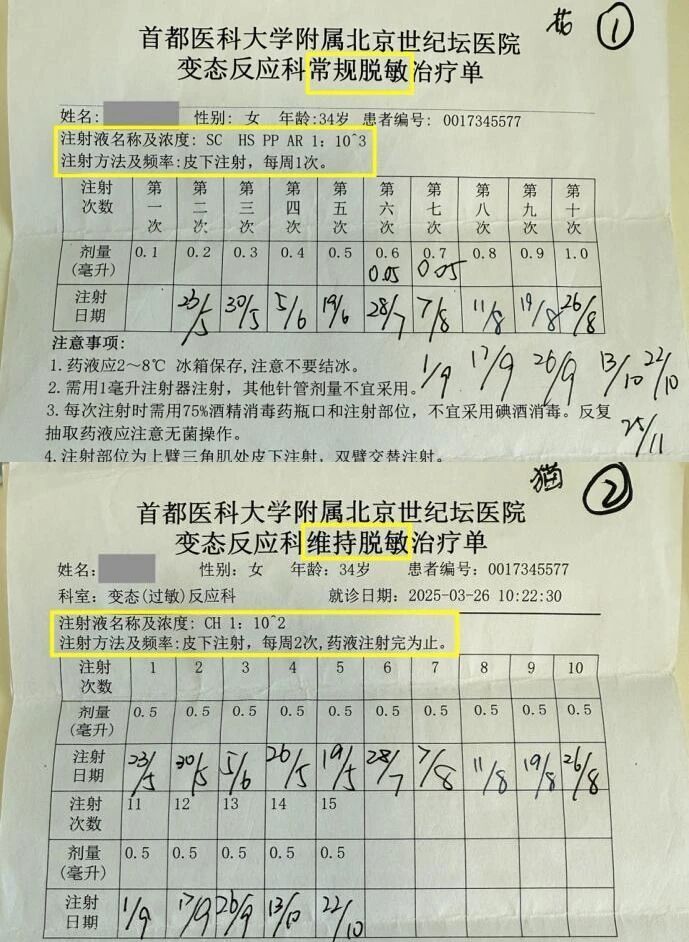 花 ①
首都医科大学附属北京世纪坛医院
变态反应科常规脱敏治疗单
姓名: 性别: 女 年龄:34岁 患者编号: 0017345577
注射液名称及浓度: SC HS PP AR 1: 10^3
注射方法及频率:皮下注射，每周1次。
注射次数 第一次 第二次 第三次 第四次 第五次 第六次 第七次 第八次 第九次 第十次
剂量(毫升) 0.1 0.2 0.3 0.4 0.5 0.6 0.7 0.8 0.9 1.0
0.05 0.05
注射日期 23/5 30/5 5/6 19/6 28/7 7/8 11/8 19/8 26/8
注意事项:
1/9 17/9 26/9 13/10 22/10
1.药液应2～8℃ 冰箱保存,注意不要结冰。
2.需用1毫升注射器注射，其他针管剂量不宜采用。
3.每次注射时需用75%酒精消毒药瓶口和注射部位，不宜采用碘酒消毒。反复
抽取药液应注意无菌操作。
25/11
4.注射部位为上臂三角肌处皮下注射，双臂交替注射。
猫 ②
首都医科大学附属北京世纪坛医院
变态反应科维持脱敏治疗单
姓名: 性别: 女 年龄: 34岁 患者编号: 0017345577
科室: 变态(过敏)反应科 就诊日期: 2025-03-26 10:22:30
注射液名称及浓度: CH 1: 10^2
注射方法及频率:皮下注射，每周2次,药液注射完为止。
注射次数 1 2 3 4 5 6 7 8 9 10
剂量(毫升) 0.5 0.5 0.5 0.5 0.5 0.5 0.5 0.5 0.5 0.5
注射日期 23/5 30/5 5/6 26/5 19/5 28/7 7/8 11/8 19/8 26/8
注射次数 11 12 13 14 15
剂量(毫升) 0.5 0.5 0.5 0.5 0.5
注射日期 1/9 17/9 26/9 13/10 22/10